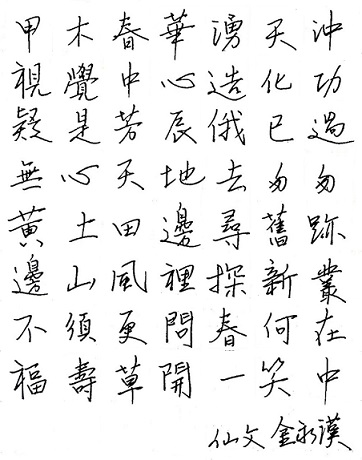 甲木春華湧天沖
視覺中心造化功
疑是芳辰俄已過
無心天地去匆匆
黃土田邊尋舊跡
邊山風裡探新叢
不須更問春何在
福壽草開一笑中
仙文 金永漢